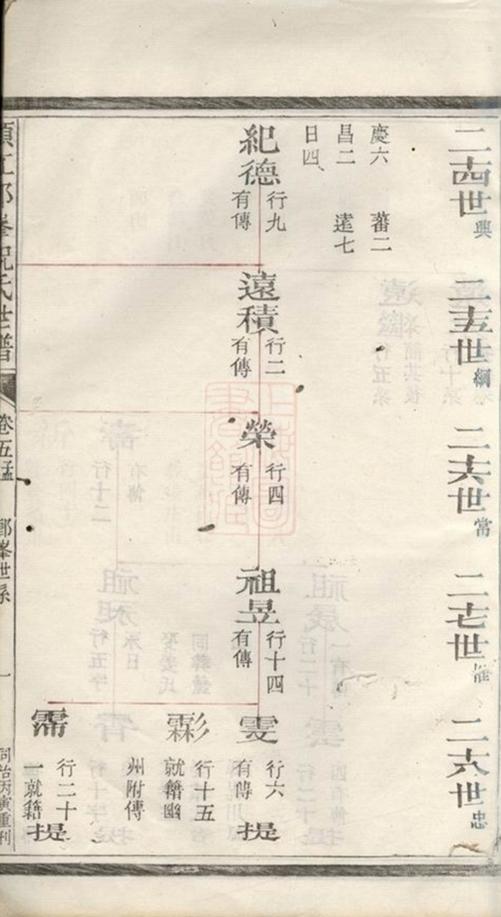 二十四世興
二十五世綱
二十六世常
二十七世
二十八世忠
慶六 蕃二
昌二 遠七
日四
紀德 行九 有傳
遠積 行二 有傳
榮 行四 有傳
祖昱 行十四 有傳
雯 行六 有傳 提
霦 行十五 就籍幽州附傳
霈 行二十一 就籍 提
郎峯祝氏世譜
卷五 郎峯世系 一
同治丙寅重刊